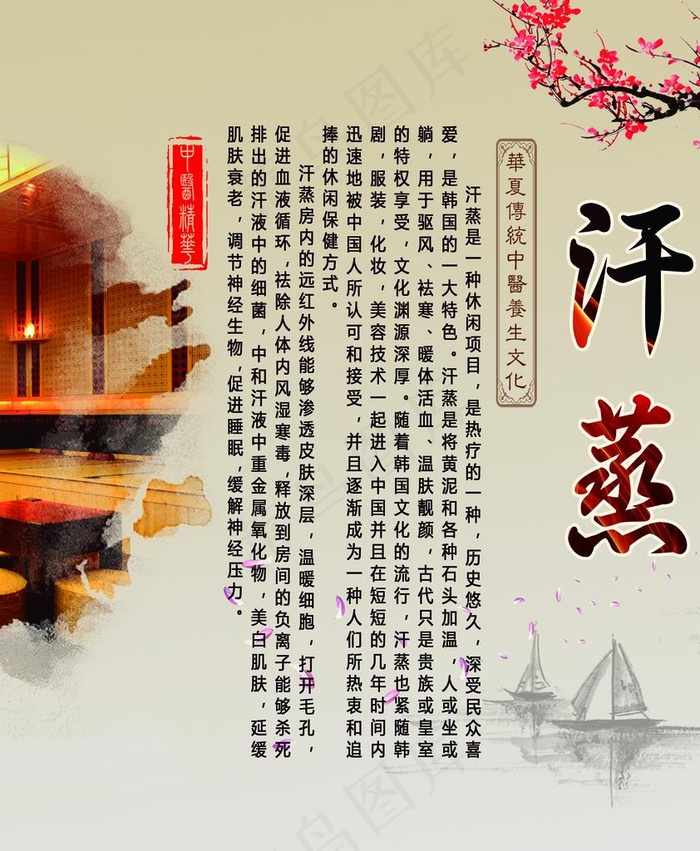 汗蒸
華夏傳統中醫養生文化
汗蒸是一种休闲项目，是热疗的一种，历史悠久，深受民众喜
爱，是韩国的一大特色。汗蒸是将黄泥和各种石头加温，人或坐或
躺，用于驱风、祛寒、暖体活血、温肤靓颜，古代只是贵族或皇室
的特权享受，文化渊源深厚。随着韩国文化的流行，汗蒸也紧随韩
剧，服装，化妆，美容技术一起进入中国并且在短短的几年时间内
迅速地被中国人所认可和接受，并且逐渐成为一种人们所热衷和追
捧的休闲保健方式。
汗蒸房内的远红外线能够渗透皮肤深层，温暖细胞，打开毛孔，
促进血液循环，祛除人体内风湿寒毒，释放到房间的负离子能够杀死
排出的汗液中的细菌，中和汗液中重金属氧化物，美白肌肤，延缓
肌肤衰老，调节神经生物，促进睡眠，缓解神经压力。
中醫精華